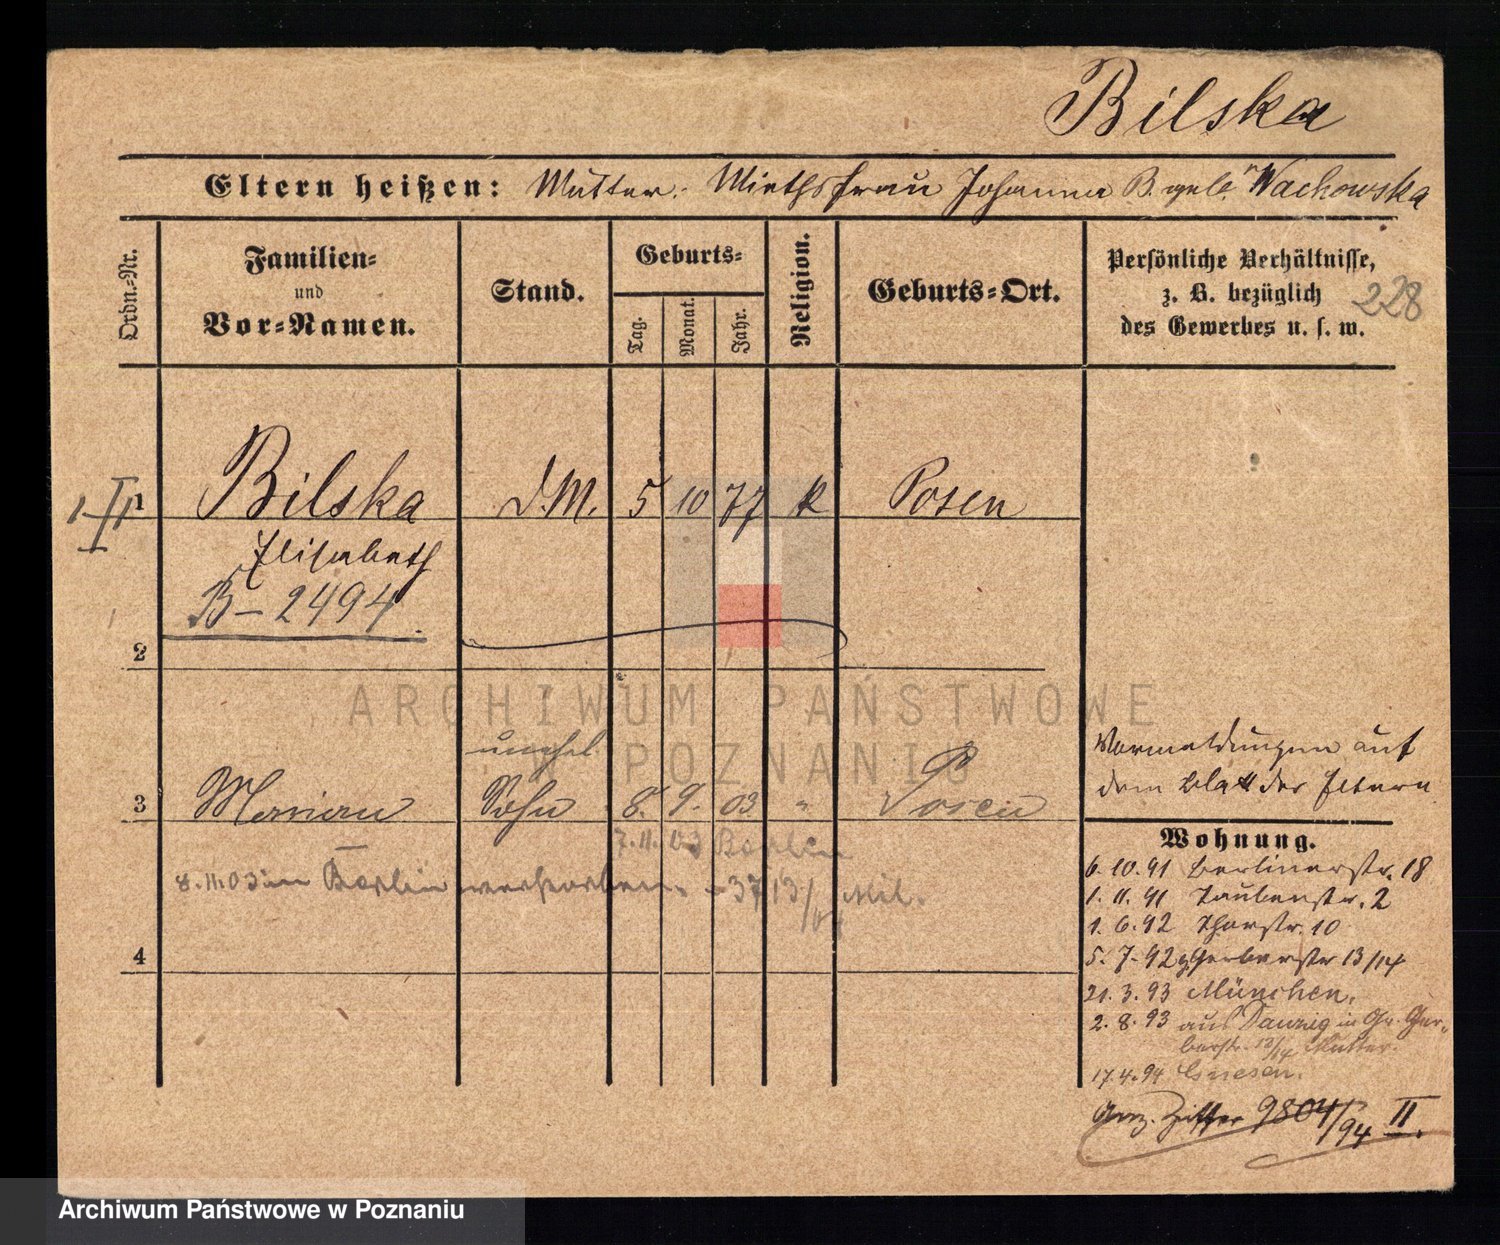 Bilska
Eltern heißen: Mutter: Miethsfrau Johanna B. geb. Wachowska
Ordn.-Nr.
Familien-
und
Vor-Namen.
Stand.
Geburts-
Tag.
Monat.
Jahr.
Religion.
Geburts-Ort.
Persönliche Verhältnisse,
z. B. bezüglich
des Gewerbes u. s. w.
228
1 Bilska D.M. 5 10 77 k Posen
Elisabeth
B-2494
2
unehel.
3 Marian Sohn 8. 9. 03 " Posen
7.11.03 Berlin
8.11.03 in Berlin verstorben. 3713/04 Mil.
4
Vormeldungen auf
dem Blatt der Eltern
Wohnung.
6.10.91 Berlinerstr. 18
1.11.91 Taubenstr. 2
1.6.92 Thorstr. 10
5.7.92 Gerberstr 13/14
21.3.93 München.
2.8.93 aus Danzig in Gr. Ger-
berstr. 13/14 Mutter.
17.4.94 Gnesen.
9804/94 II.
ARCHIWUM PAŃSTWOWE
W POZNANIU
Archiwum Państwowe w Poznaniu